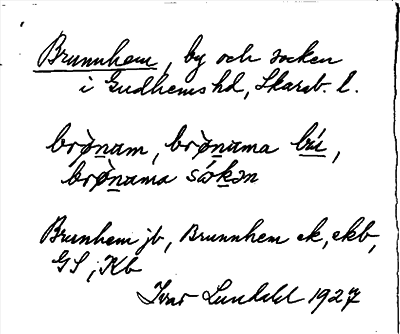 Brunnhem, by och socken
i Gudhems hd, Skarab. l.
brø̀nam, brø̀nama bú,
brø̀nama sǻkən
Brunhem jb, Brunnhem ek, ekb,
GS, Kb
Ivar Lundahl 1927